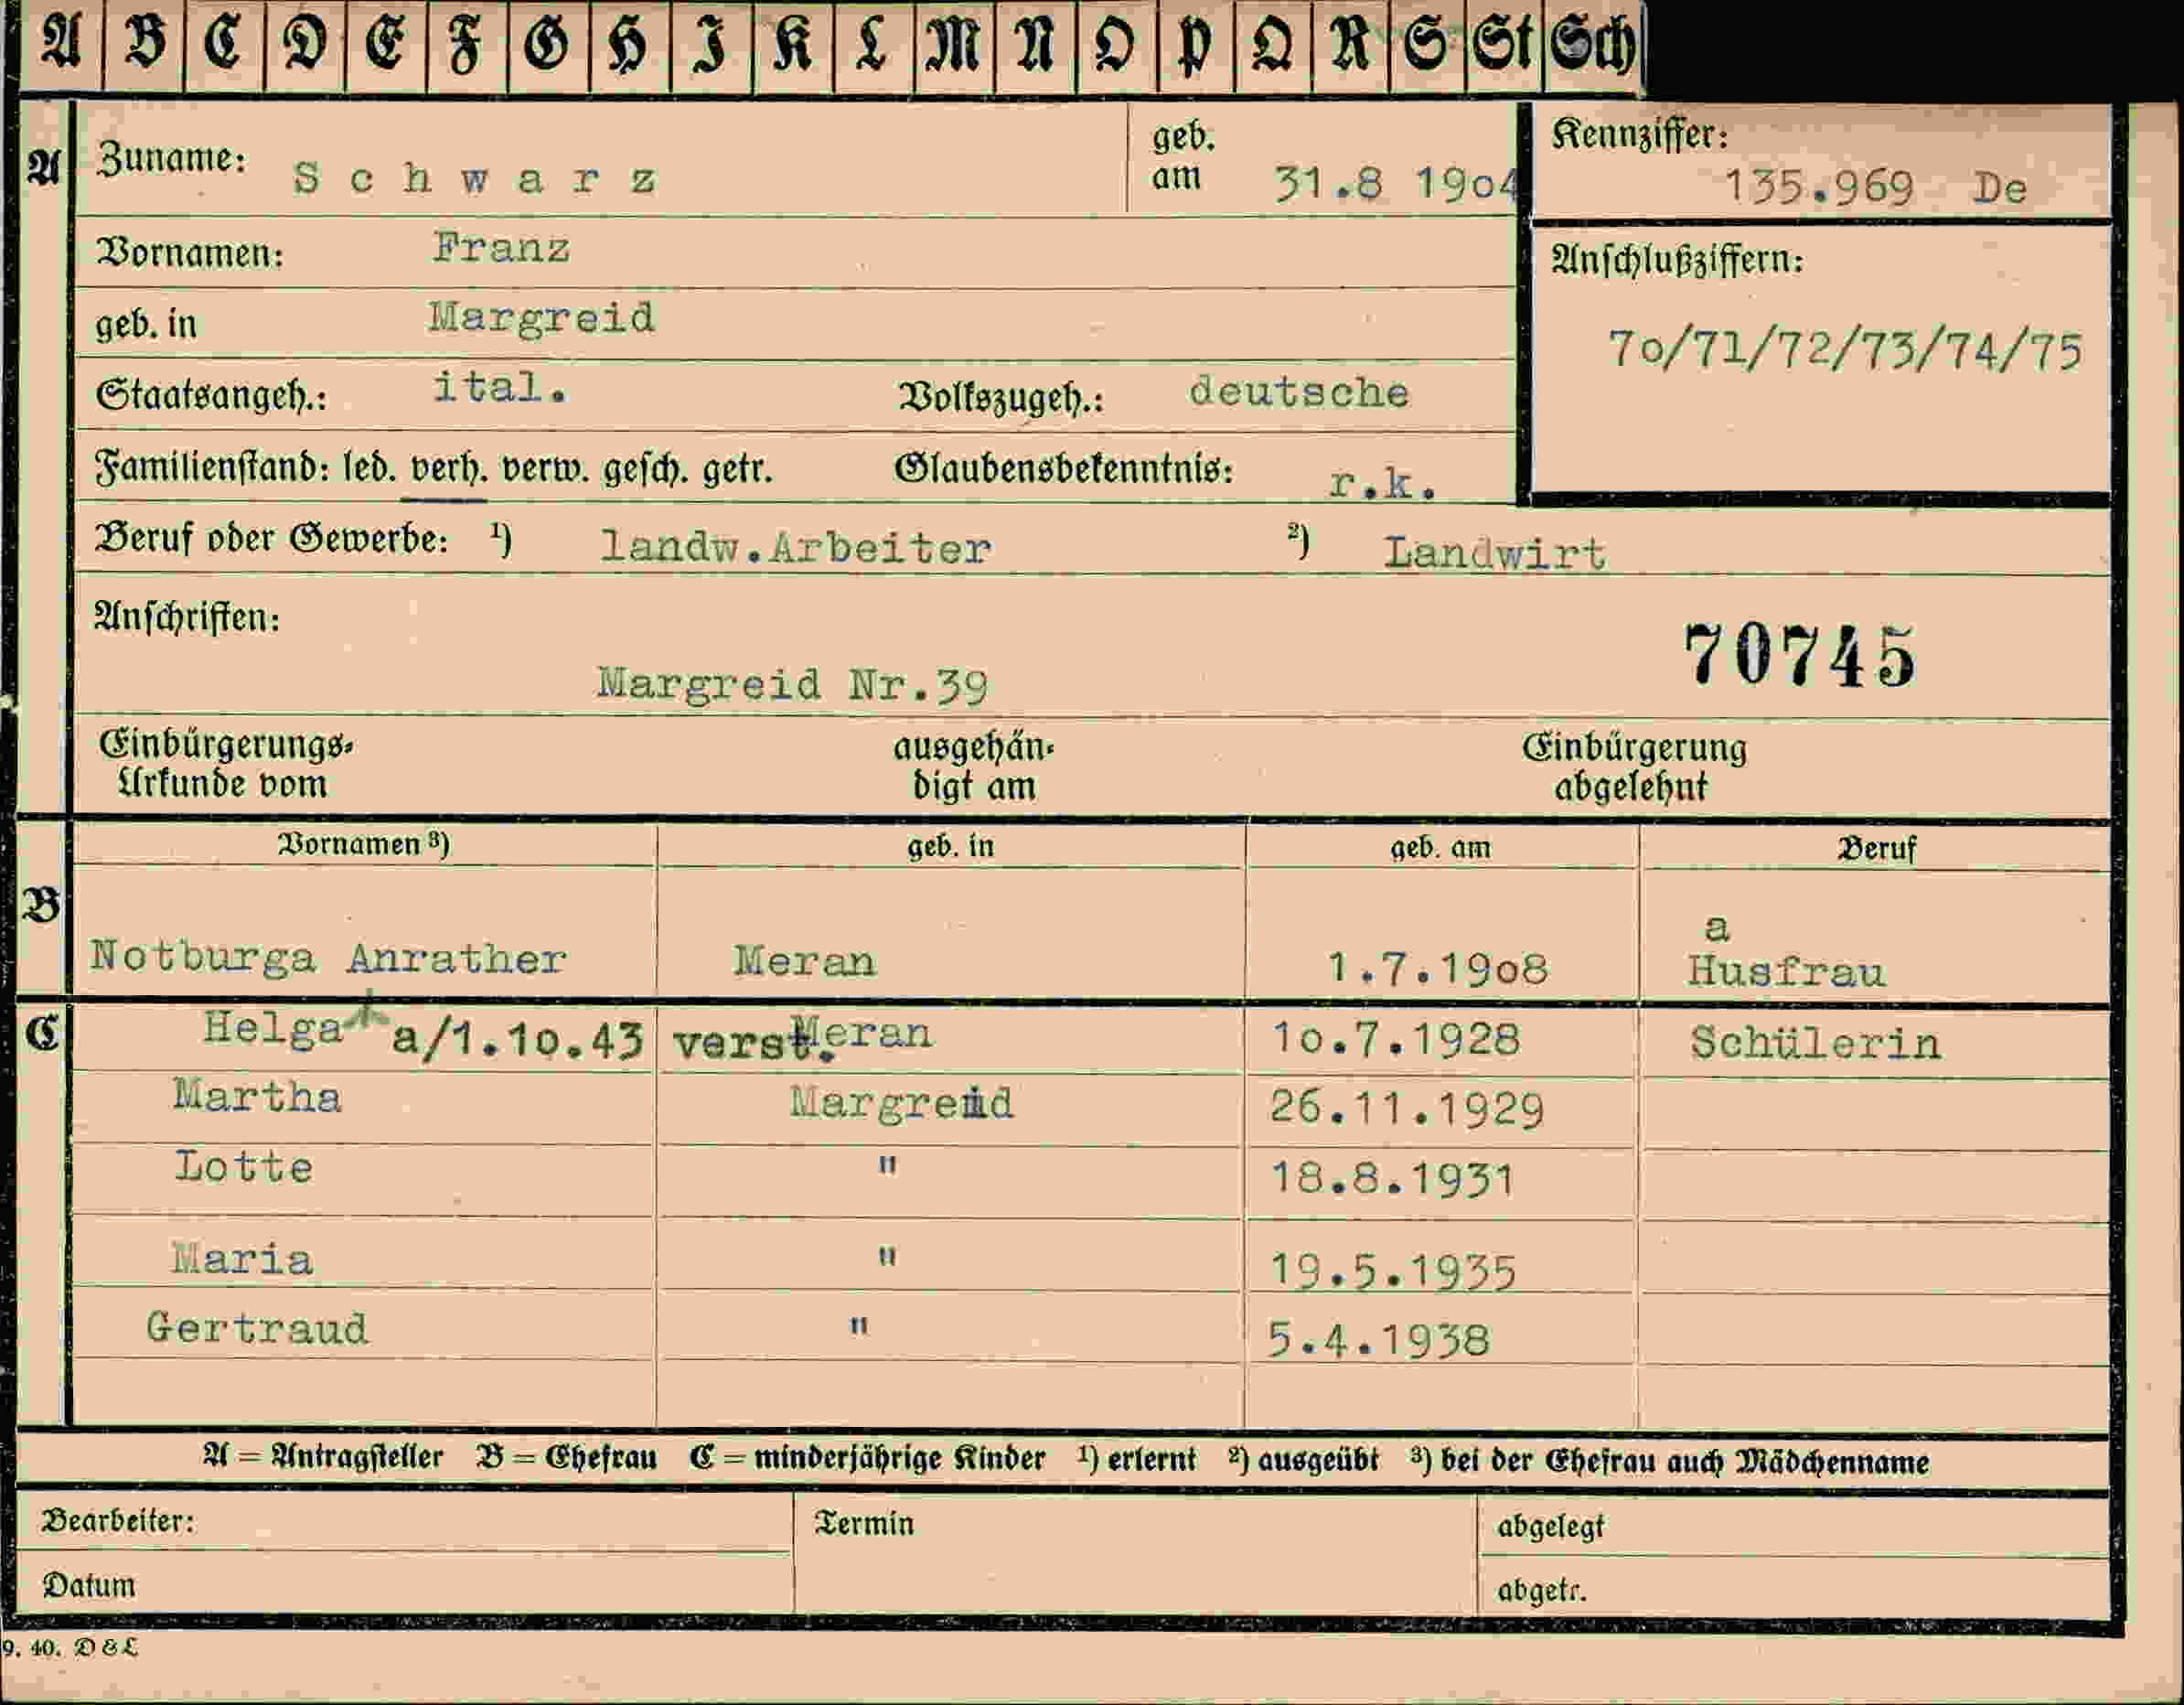 A B C D E F G H I K L M N O P Q R S St Sch
A Zuname: Schwarz geb. am 31.8 19o4 Kennziffer: 135.969 De
Vornamen: Franz
Anschlußziffern:
geb. in Margreid
7o/71/72/73/74/75
Staatsangeh.: ital. Volkszugeh.: deutsche
Familienstand: led. verh. verw. gesch. getr. Glaubensbekenntnis: r.k.
Beruf oder Gewerbe: ¹) landw.Arbeiter ²) Landwirt
Anschriften:
Margreid Nr.39 70745
Einbürgerungs- ausgehän- Einbürgerung
Urkunde vom digt am abgelehnt
Vornamen ³) geb. in geb. am Beruf
B
a
Notburga Anrather Meran 1.7.19o8 Husfrau
C Helga a/1.1o.43 verst. Meran 1o.7.1928 Schülerin
Martha Margreid 26.11.1929
Lotte " 18.8.1931
Maria " 19.5.1935
Gertraud " 5.4.1938
A = Antragsteller B = Ehefrau C = minderjährige Kinder ¹) erlernt ²) ausgeübt ³) bei der Ehefrau auch Mädchenname
Bearbeiter: Termin abgelegt
Datum abgetr.
9. 40. D & L